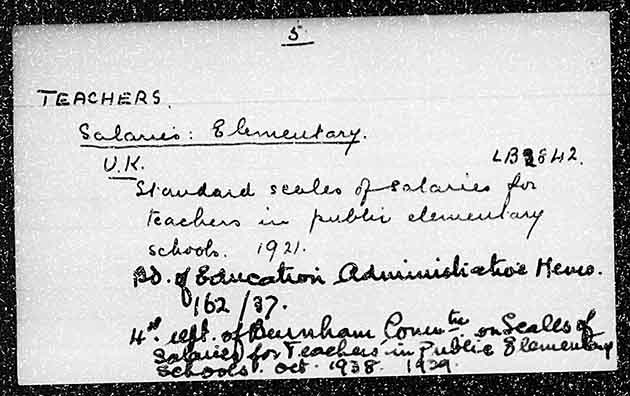 5
TEACHERS.
Salaries: Elementary.
U.K.
LB2842.
Standard scales of salaries for
teachers in public elementary
schools. 1921.
Bd. of Education Administrative Memo.
162/37.
4th rept. of Burnham Comm<sup>tee</sup> on Scales of
Salaries for Teachers in Public Elementary
Schools. Oct. 1938. 1929.